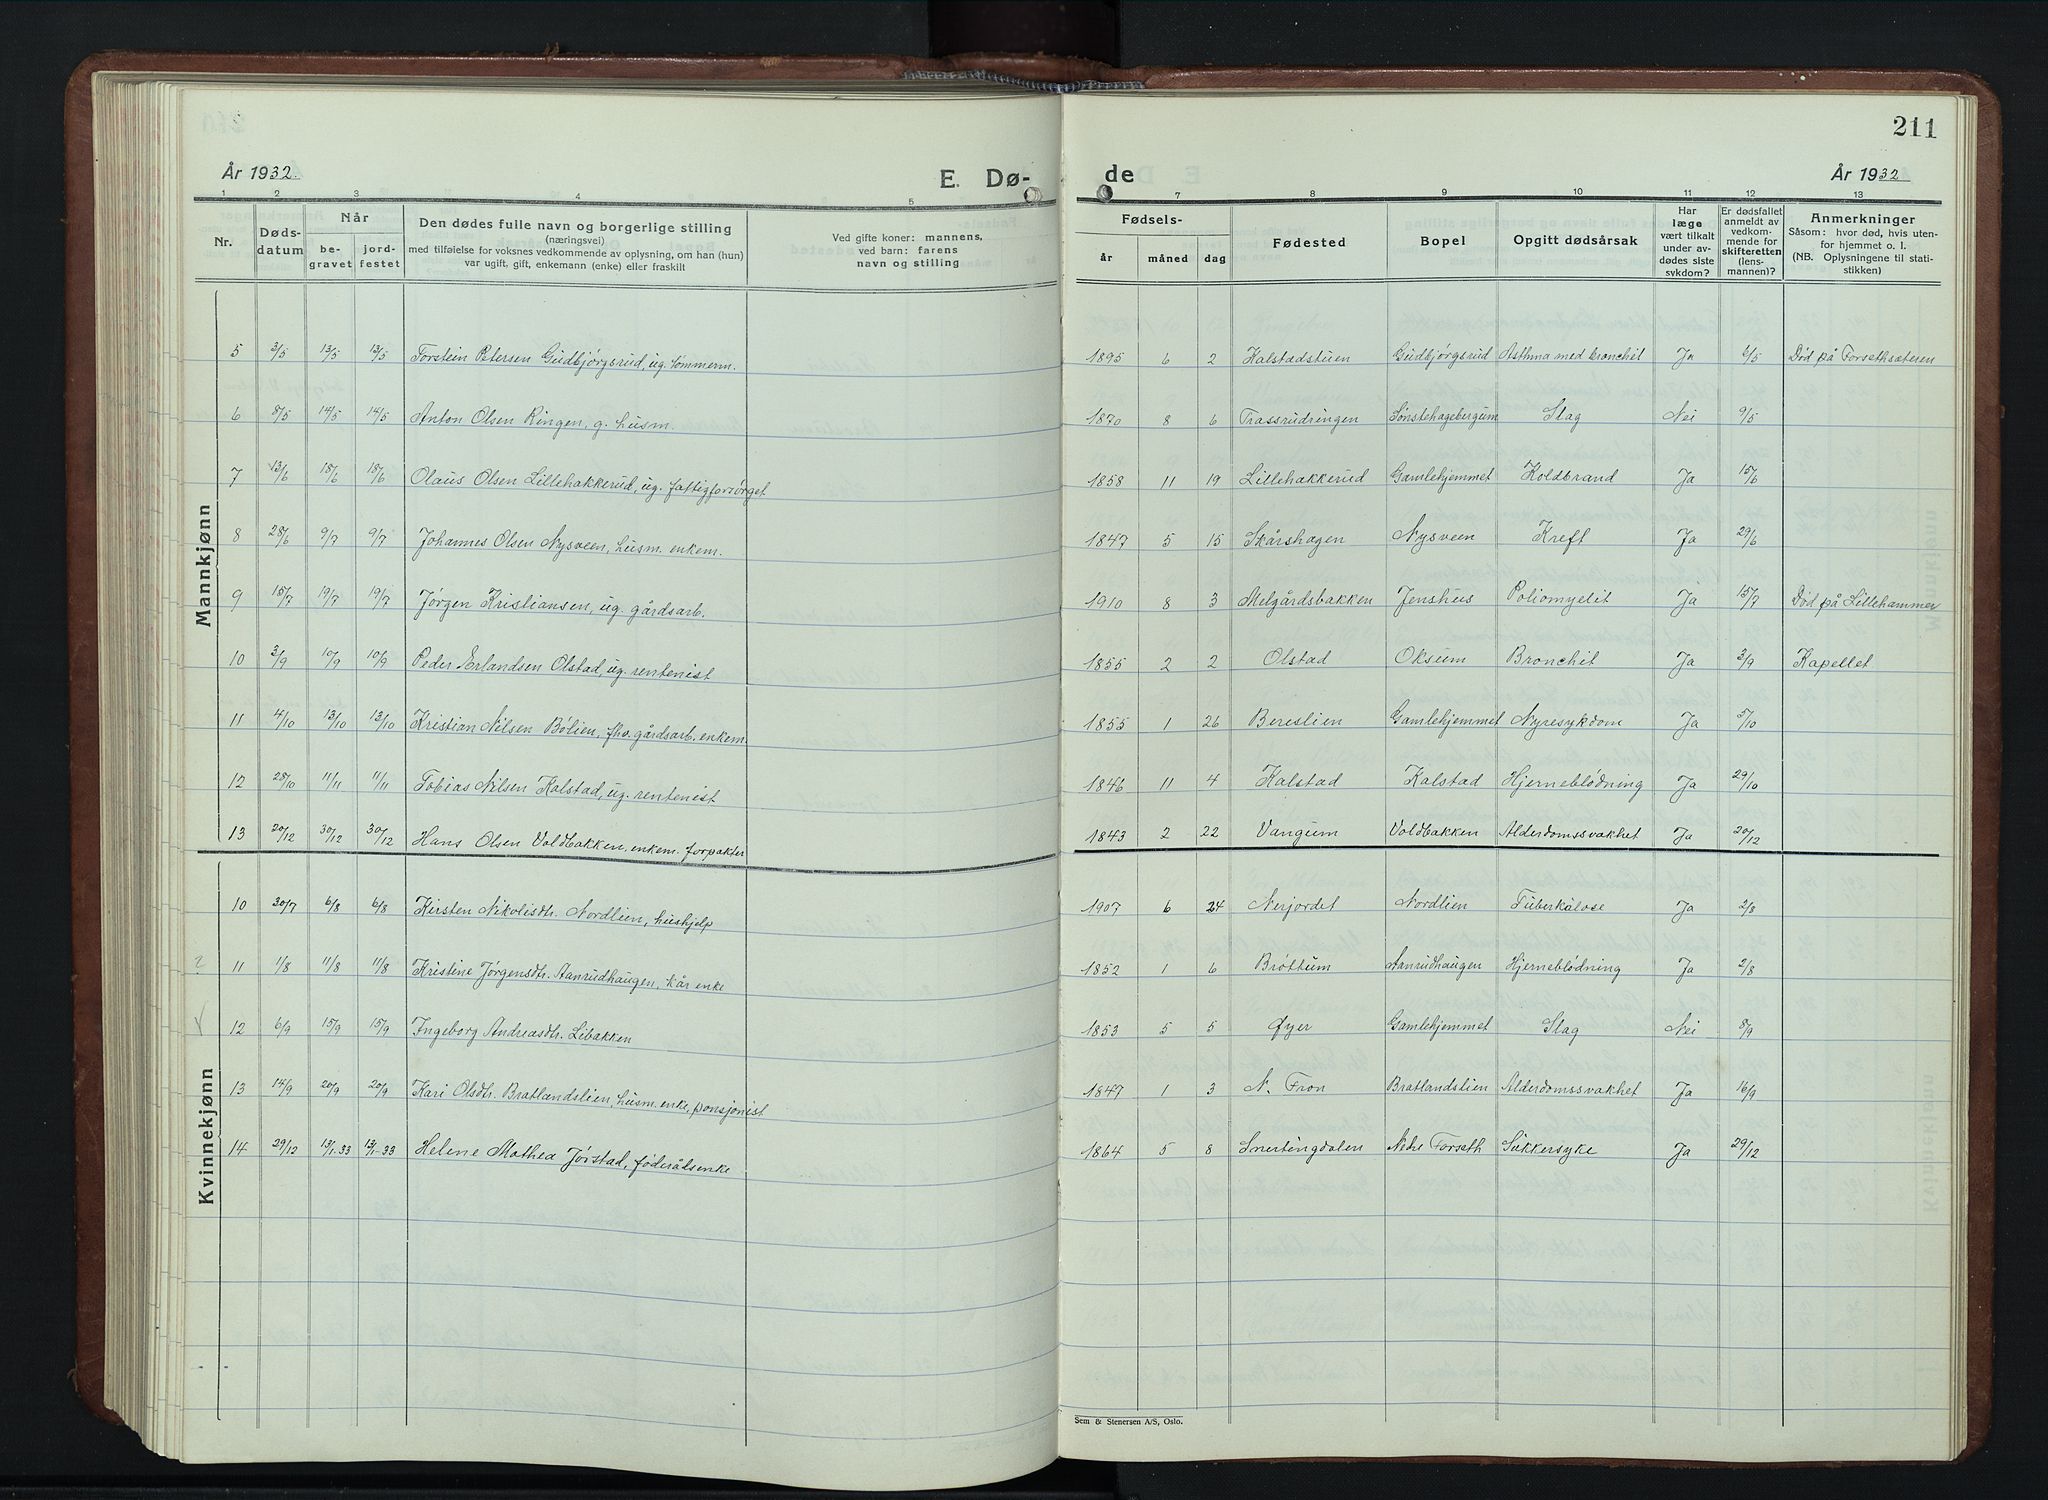 211
År 1932.
E. Dø-
de
År 1932
1 2 3 4 5 7 8 9 10 11 12 13
Nr.
Døds-
datum
Når
be-
gravet
jord-
festet
Den dødes fulle navn og borgerlige stilling
(næringsvei)
med tilføielse for voksnes vedkommende av oplysning, om han (hun)
var ugift, gift, enkemann (enke) eller fraskilt
Ved gifte koner: mannens,
ved barn: farens
navn og stilling
Fødsels-
år måned dag
Fødested
Bopel
Opgitt dødsårsak
Har
læge
vært tilkalt
under av-
dødes siste
sykdom?
Er dødsfallet
anmeldt av
vedkom-
mende for
skifteretten
(lens-
mannen)?
Anmerkninger
Såsom: hvor død, hvis uten-
for hjemmet o. l.
(NB. Oplysningene til stati-
stikken)
Mannkjønn
5 3/5 13/5 13/5 Torstein Petersen Gudbjørgsrud, ug. tømmerm. 1895 6 2 Kalstadstuen Gudbjørgsrud Asthma med bronchit Ja 6/5 Død på Forsethsæteren
6 8/5 14/5 14/5 Anton Olsen Ringen, g. husm. 1870 8 6 Trassrudringen Sønstehagebergum Slag Nei 9/5
7 13/6 18/6 18/6 Olaus Olsen Lillehakkerud, ug. fattigforsørget 1858 11 19 Lillehakkerud Gamlehjemmet Koldbrand Ja 15/6
8 28/6 9/7 9/7 Johannes Olsen Nysveen, husm. enkem. 1847 5 15 Skårshagen Nysveen Kreft Ja 29/6
9 15/7 19/7 19/7 Jørgen Kristiansen, ug. gårdsarb. 1910 8 3 Melgårdsbakken Jenshus Poliomyelit Ja 15/7 Død på Lillehammer
10 3/9 10/9 10/9 Peder Erlandsen Olstad, ug. rentenist 1855 2 2 Olstad Oksum Bronchit Ja 3/9 Kapellet
11 4/10 13/10 13/10 Kristian Nilsen Bølien, fhv. gårdsarb. enkem. 1855 1 26 Bereslien Gamlehjemmet Nyresykdom Ja 5/10
12 28/10 11/11 11/11 Tobias Nilsen Kalstad, ug. rentenist 1846 11 4 Kalstad Kalstad Hjerneblødning Ja 29/10
13 20/12 30/12 30/12 Hans Olsen Voldbakken, enkem. forpakter 1843 2 22 Vangum Voldbakken Alderdomssvakhet Ja 20/12
Kvinnekjønn
10 30/7 6/8 6/8 Kirsten Nikolisdtr. Nordlien, hushjelp 1907 6 24 Nerjordet Nordlien Tuberkulose Ja 2/8
? 11 1/8 11/8 11/8 Kristine Jørgensdtr. Aanrudhaugen, kår enke 1852 1 6 Brøttum Aanrudhaugen Hjerneblødning Ja 2/8
12 6/9 15/9 15/9 Ingeborg Andreasdtr. Libakken 1853 5 5 Øyer Gamlehjemmet Slag Nei 8/9
13 14/9 20/9 20/9 Kari Olsdtr. Bratlandslien, husm. enke, pensjonist 1847 1 3 N. Fron Bratlandslien Alderdomssvakhet Ja 16/9
14 29/12 13/1-33 13/1-33 Helene Mathea Jørstad, føderådsenke 1864 5 8 Snertingdalen Nedre Forseth Sukkersyke Ja 29/12
Sem & Stenersen A/S, Oslo.